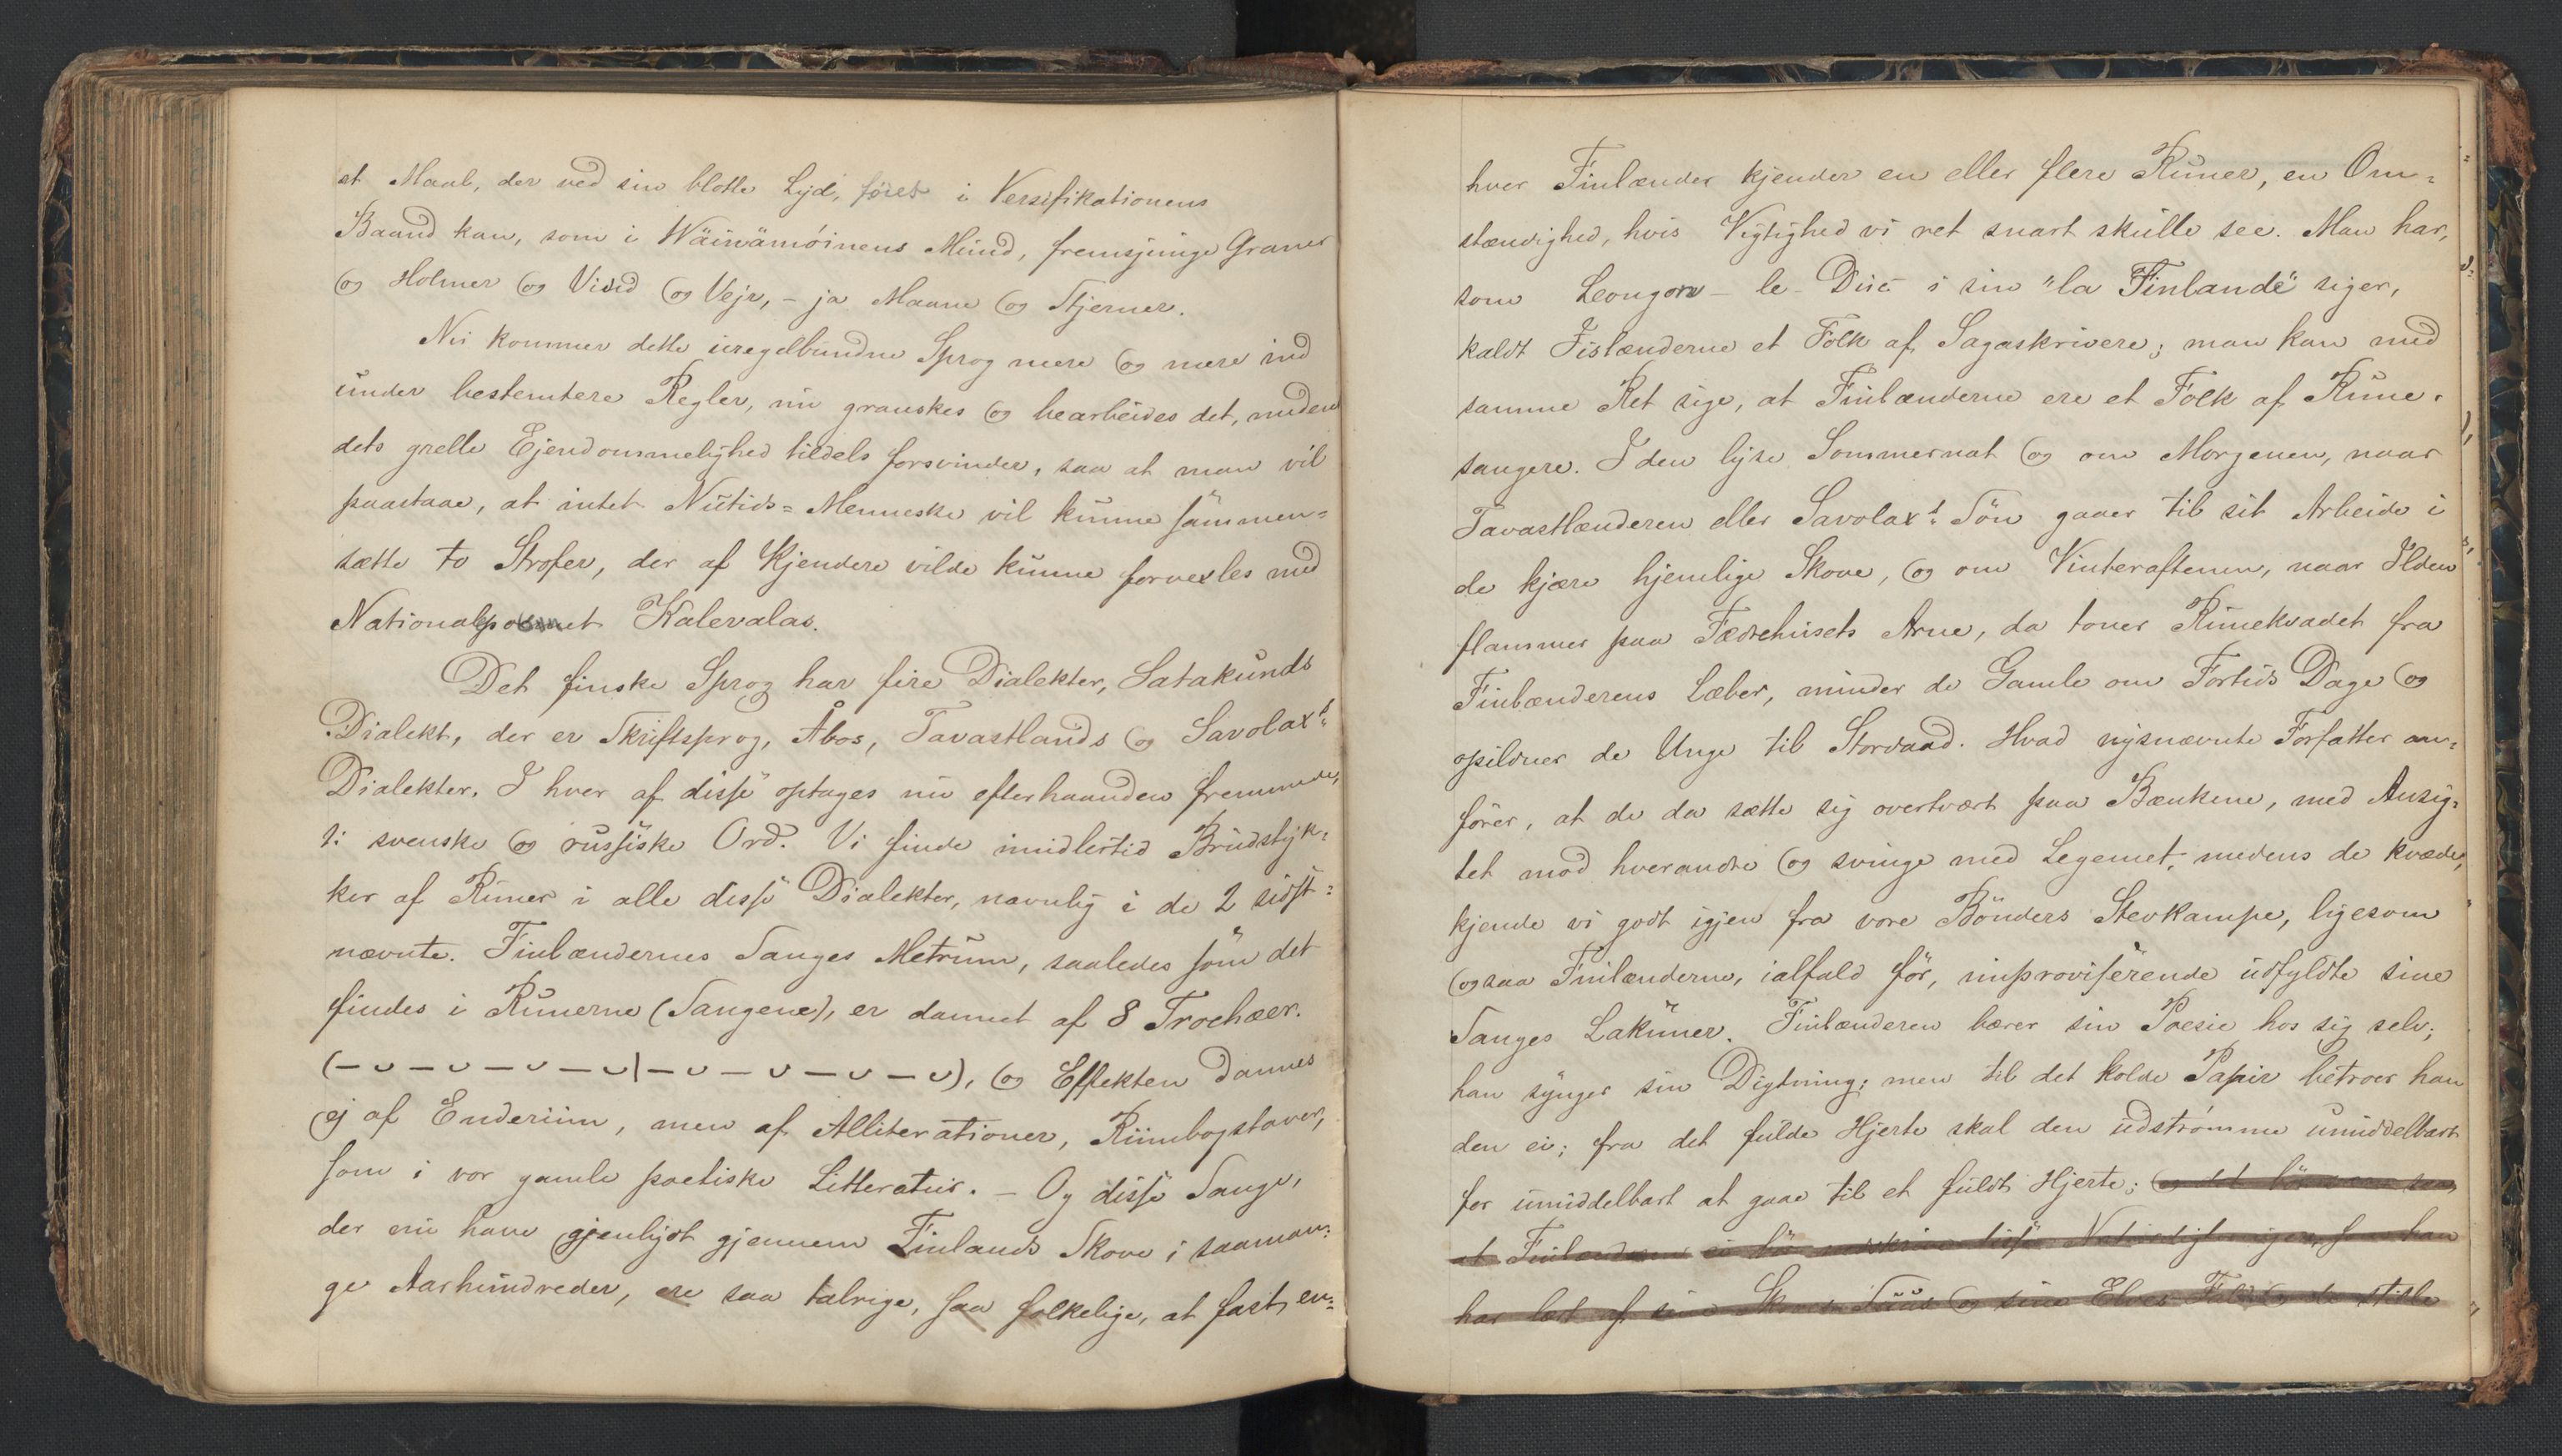 et Maal, der ved sin blotte Lyd, föiet i Versifikationens
Baand kan, som i Wäinämöinens Mund, fremsjunge Graner
og Holmer og Vind og Vejr, – ja Maane og Stjerner.
Nu kommer dette uregelbundne Sprog mere og mere ind
under bestemtere Regler, nu granskes og bearbeides det, meden
dets grelle Ejendommelighed tildels forsvinder, saa at man vil
paastaae, at intet Nutids=Menneske vil kunne sammen=
sætte to Strofer, der af Kjendere vilde kunne forvexles med
Nationalpoemet Kalevalas.
Det finske Sprog har fire Dialekter, Satakunds
Dialekt, der er Skriftsprog, Åbos, Tavastlands og Savolax's
Dialekter. I hver af disse optages nu efterhaanden fremmede,
ɔ: svenske og russiske Ord. Vi finde imidlertid Brudstyk=
ker af Runer i alle disse Dialekter, navnlig i de 2 sidst=
nævnte. Finlændernes Sanges Metrum, saaledes som det
findes i Runerne (Sangene), er dannet af 8 Trochæer.
(– ᴗ – ᴗ – ᴗ – ᴗ | – ᴗ – ᴗ – ᴗ – ᴗ), og Effekten dannes
ej af Enderiim, men af Alliterationer, Riimbogstaver,
som i vor gamle poetiske Litteratur. – Og disse Sange,
der nu have gjenlydt gjennem Finlands Skove i saaman=
ge Aarhundreder, ere saa talrige, saa folkelige, at fast en=
hver Finlænder kjender en eller flere Runer, en Om=
stændighed, hvis Vigtighed vi ret snart skulle see. Man har,
som Leouzon – le – Duc i sin "la Finlande" siger,
kaldt Islænderne et Folk af Sagaskrivere; man kan med
samme Ret sige, at Finlænderne ere et Folk af Rune=
sangere. I den lyse Sommernat og om Morgenen, naar
Tavastlænderen eller Savolax's Sön gaaer til sit Arbeide i
de kjære hjemlige Skove, og om Vinteraftenen, naar Ilden
flammer paa Fædrehusets Arne, da toner Runekvadet fra
Finlænderens Læber, minder de Gamle om Fortids Dage og
opildner de Unge til Stordaad. Hvad nysnævnte Forfatter an=
förer, at de da sætte sig overtvært paa Bænkene, med Ansig=
tet mod hverandre og svinge med Legemet, medens de kvæde,
kjende vi godt igjen fra vore Bönders Stevkampe, ligesom
ogsaa Finlænderne, ialfald för, improviserende udfyldte sine
Sanges Lakuner. Finlænderen bærer sin Poesie hos sig selv;
han synger sin Digtning; men til det kolde Papir betroer han
den ei; fra det fulde Hjerte skal den udströmme umiddelbart
for umiddelbart at gaae til et fuldt Hjerte; og det
at Finlænderen ei
har lært af sine Skoves Suus og sine Elves Fald og de stille